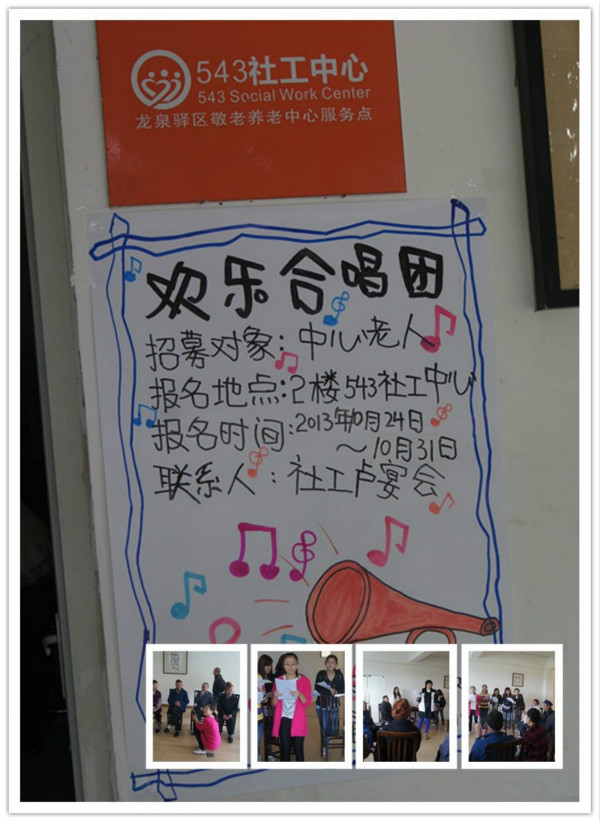 543社工中心
543 Social Work Center
龙泉驿区敬老养老中心服务点
欢乐合唱团
招募对象：中心老人
报名地点：2楼543社工中心
报名时间：2013年10月24日
～10月31日
联系人：社工卢宴会